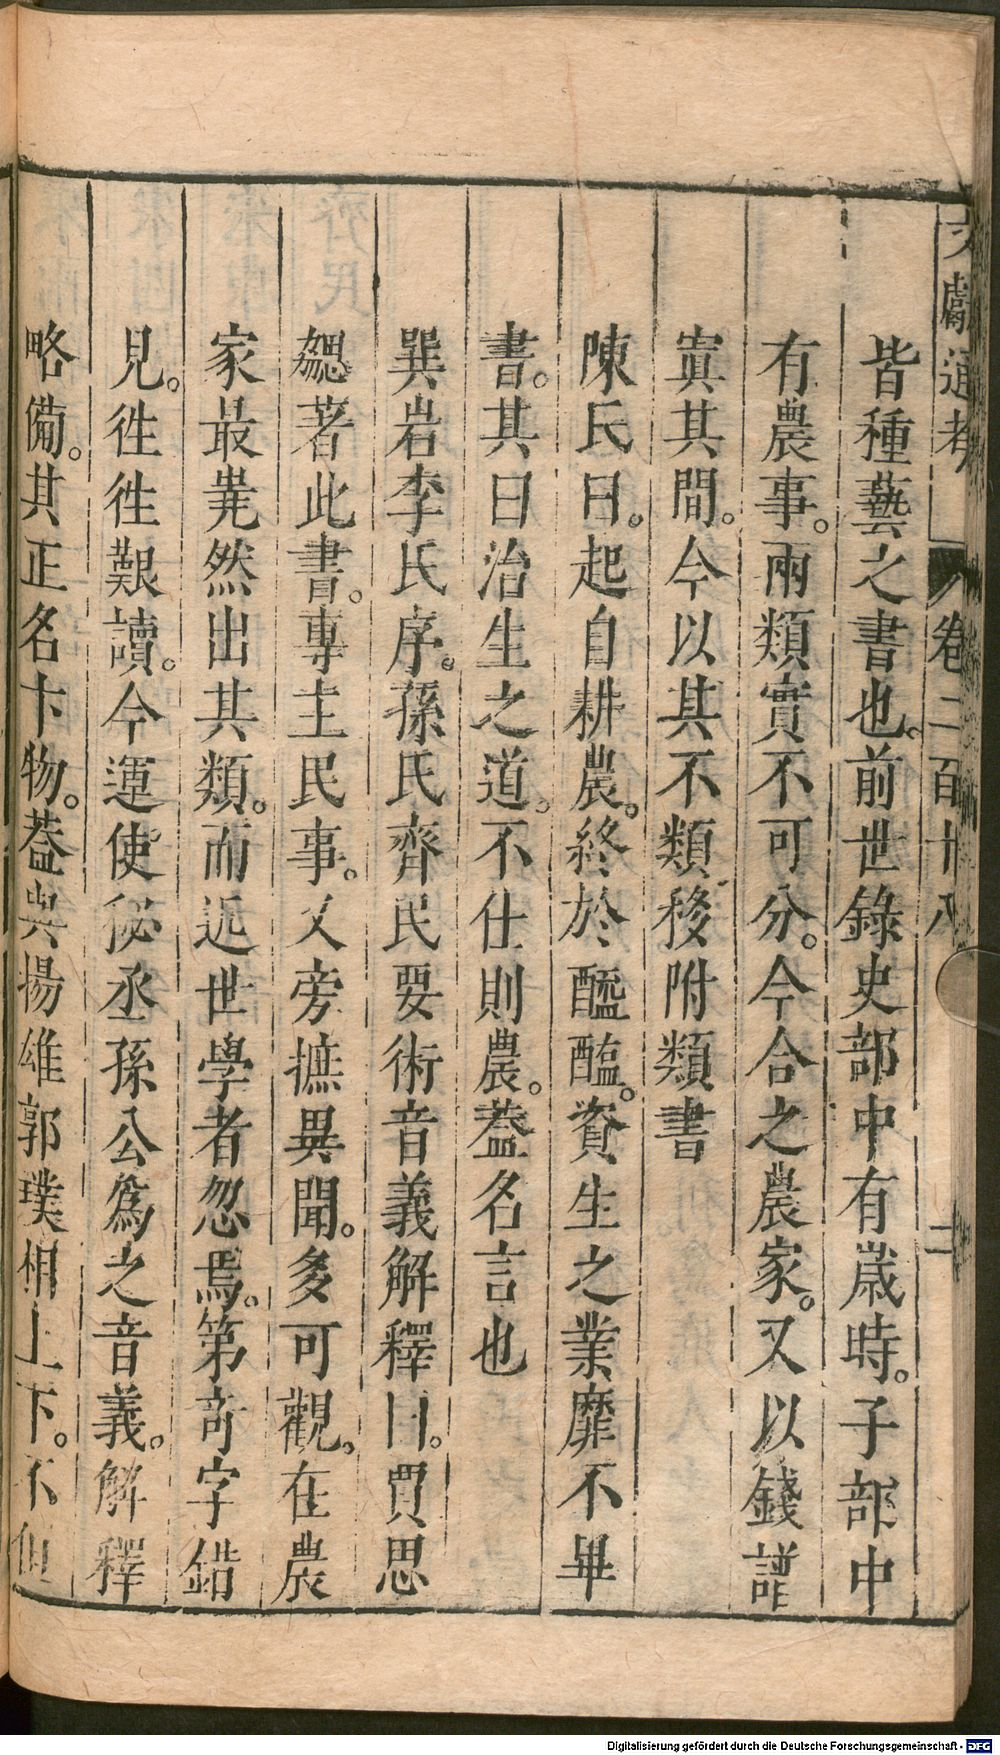 文獻通考 卷二百十八 二
皆種藝之書也。前世錄史部中有歲時。子部中
有農事。兩類實不可分。今合之農家。又以錢譜
寘其間。今以其不類移附類書
陳氏曰。起自耕農。終於醯醢。資生之業靡不畢
書。其曰治生之道。不仕則農。葢名言也
巽岩李氏序。孫氏齊民要術音義解釋曰。賈思
勰著此書。專主民事。又旁摭異聞。多可觀。在農
家最嶤然出其類。而近世學者忽焉。第奇字錯
見。徃徃艱讀。今運使秘丞孫公爲之音義。解釋
略備。其正名卞物。葢與揚雄郭璞相上下。不但
Digitalisierung gefördert durch die Deutsche Forschungsgemeinschaft - DFG